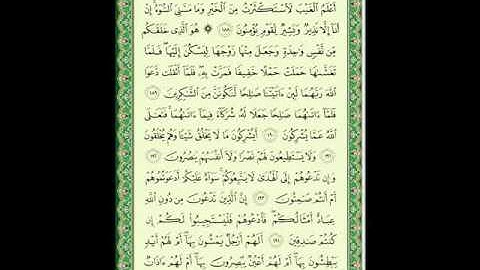 أَعْلَمُ الْغَيْبَ لَاسْتَكْثَرْتُ مِنَ الْخَيْرِ وَمَا مَسَّنِيَ السُّوءُ إِنْ
أَنَا إِلَّا نَذِيرٌ وَبَشِيرٌ لِّقَوْمٍ يُؤْمِنُونَ ١٨٨ ۞ هُوَ الَّذِي خَلَقَكُم
مِّن نَّفْسٍ وَاحِدَةٍ وَجَعَلَ مِنْهَا زَوْجَهَا لِيَسْكُنَ إِلَيْهَا فَلَمَّا
تَغَشَّاهَا حَمَلَتْ حَمْلًا خَفِيفًا فَمَرَّتْ بِهِ فَلَمَّا أَثْقَلَت دَّعَوَا
اللَّهَ رَبَّهُمَا لَئِنْ آتَيْتَنَا صَالِحًا لَّنَكُونَنَّ مِنَ الشَّاكِرِينَ ١٨٩
فَلَمَّا آتَاهُمَا صَالِحًا جَعَلَا لَهُ شُرَكَاءَ فِيمَا آتَاهُمَا فَتَعَالَى
اللَّهُ عَمَّا يُشْرِكُونَ ١٩٠ أَيُشْرِكُونَ مَا لَا يَخْلُقُ شَيْئًا وَهُمْ يُخْلَقُونَ
١٩١ وَلَا يَسْتَطِيعُونَ لَهُمْ نَصْرًا وَلَا أَنفُسَهُمْ يَنصُرُونَ ١٩٢
وَإِن تَدْعُوهُمْ إِلَى الْهُدَى لَا يَتَّبِعُوكُمْ سَوَاءٌ عَلَيْكُمْ أَدَعَوْتُمُوهُمْ
أَمْ أَنتُمْ صَامِتُونَ ١٩٣ إِنَّ الَّذِينَ تَدْعُونَ مِن دُونِ اللَّهِ
عِبَادٌ أَمْثَالُكُمْ فَادْعُوهُمْ فَلْيَسْتَجِيبُوا لَكُمْ إِن
كُنتُمْ صَادِقِينَ ١٩٤ أَلَهُمْ أَرْجُلٌ يَمْشُونَ بِهَا أَمْ لَهُمْ أَيْدٍ
يَبْطِشُونَ بِهَا أَمْ لَهُمْ أَعْيُنٌ يُبْصِرُونَ بِهَا أَمْ لَهُمْ آذَانٌ